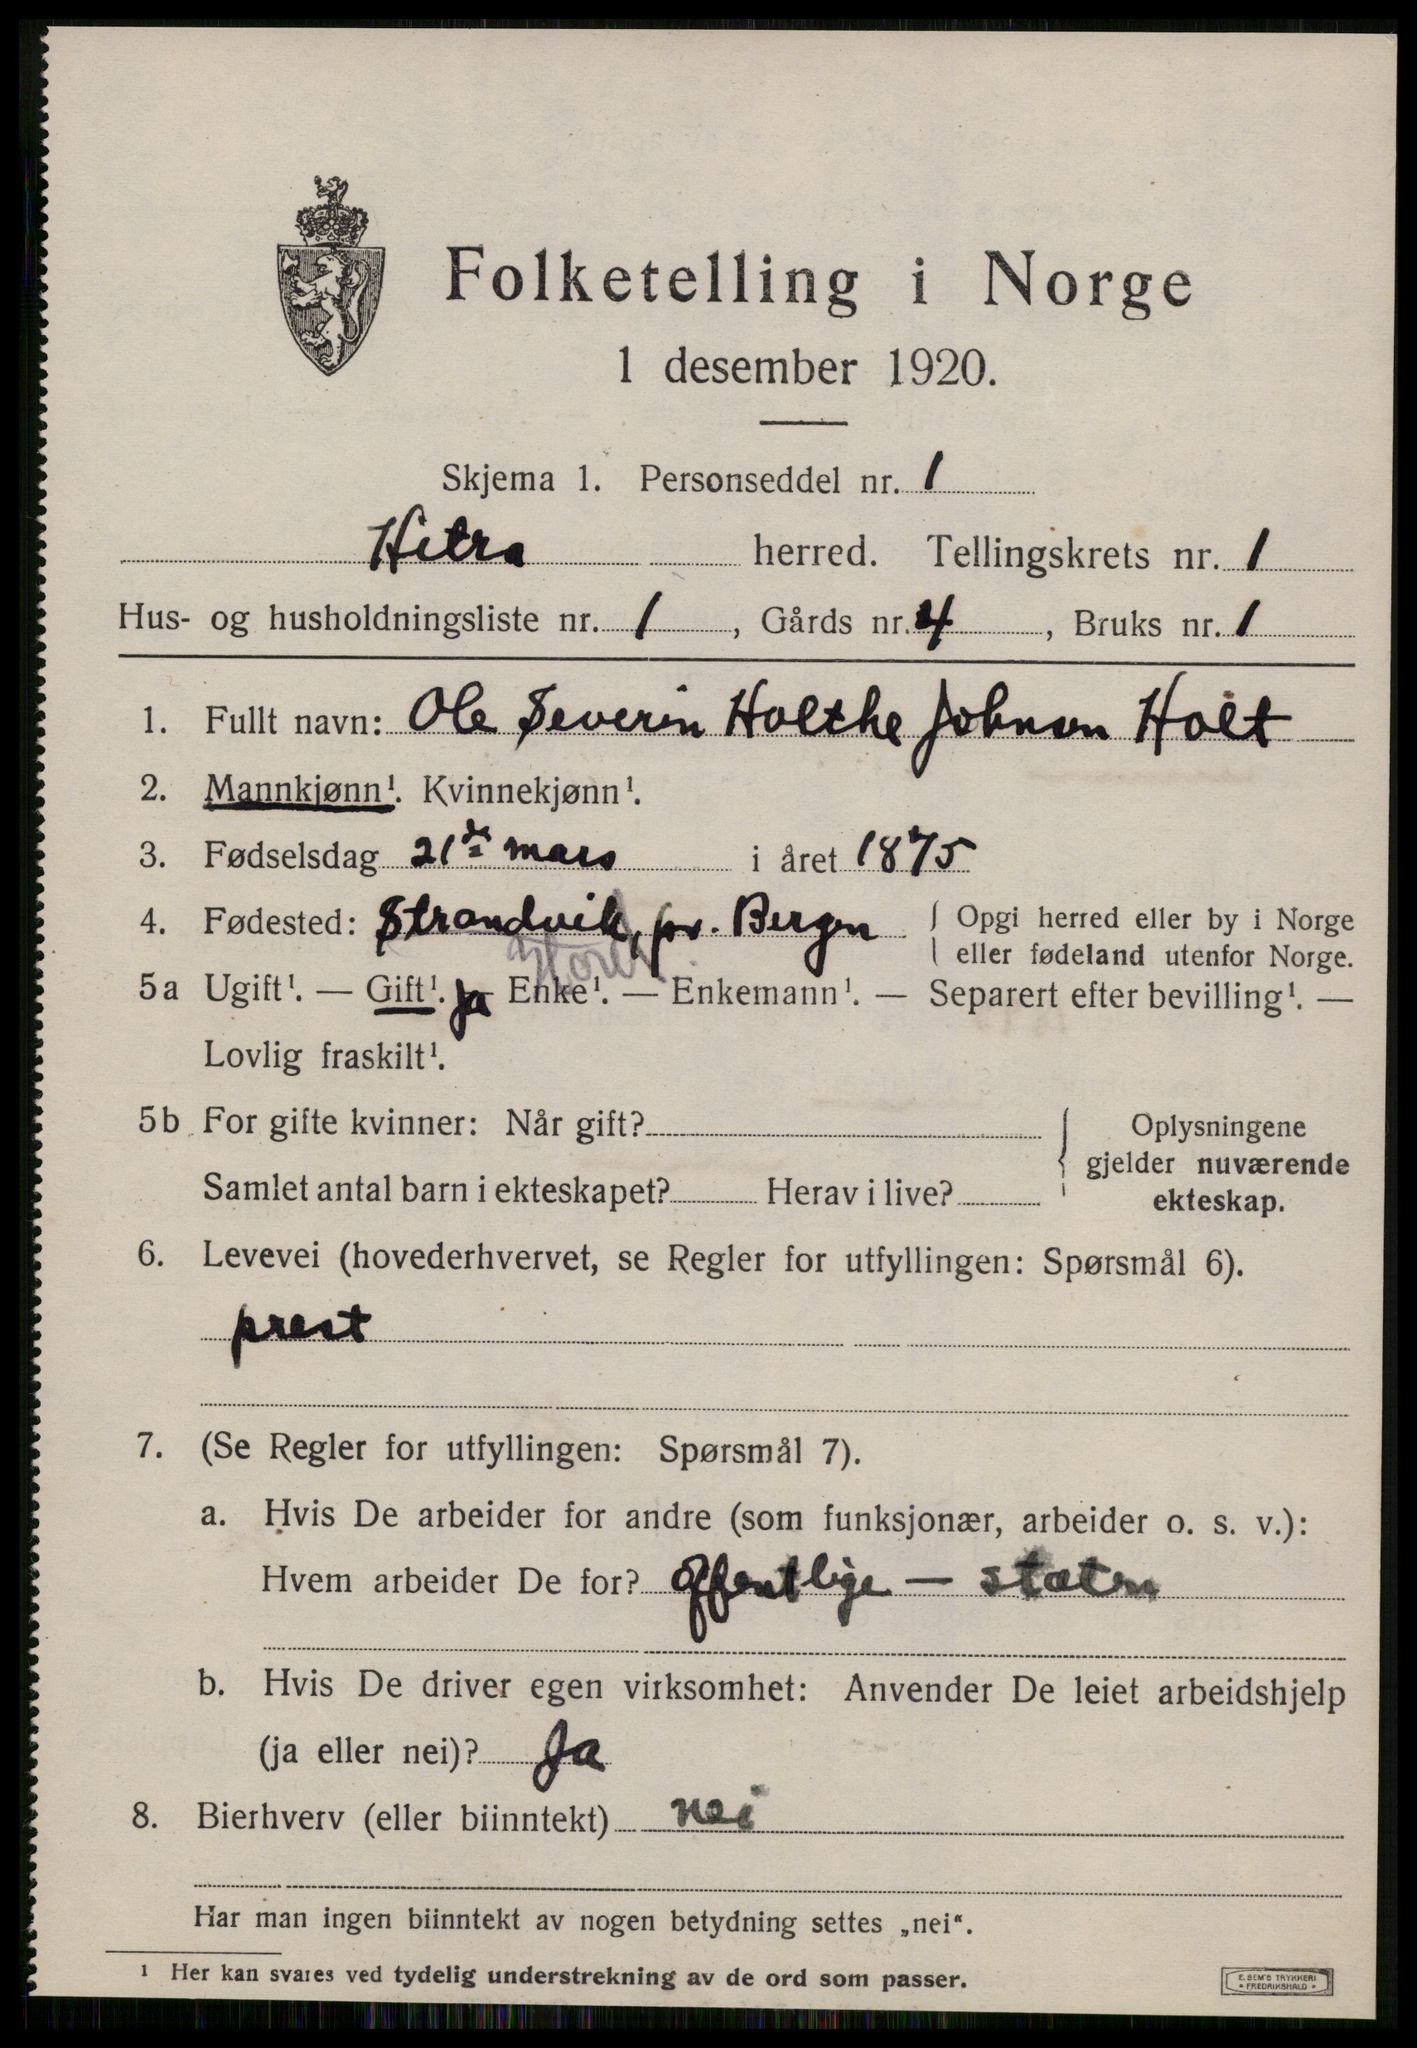 Folketelling i Norge
1 desember 1920.
Skjema 1. Personseddel nr. 1
Hitra herred. Tellingskrets nr. 1
Hus- og husholdningsliste nr. 1, Gårds nr. 4, Bruks nr. 1
1. Fullt navn: Ole Severin Holthe Johnson Holt
2. Mannkjønn¹. Kvinnekjønn¹.
3. Fødselsdag 21de mars i året 1875
4. Fødested: Strandvik, pr. Bergen { Opgi herred eller by i Norge
eller fødeland utenfor Norge.
5a Ugift¹. — Gift¹. Ja — Enke¹. — Enkemann¹. — Separert efter bevilling¹. —
Lovlig fraskilt¹.
5b For gifte kvinner: Når gift? { Oplysningene
gjelder nuværende
Samlet antal barn i ekteskapet? Herav i live? ekteskap.
6. Levevei (hovederhvervet, se Regler for utfyllingen: Spørsmål 6).
prest
7. (Se Regler for utfyllingen: Spørsmål 7).
a. Hvis De arbeider for andre (som funksjonær, arbeider o. s. v.):
Hvem arbeider De for? offentlige — staten
b. Hvis De driver egen virksomhet: Anvender De leiet arbeidshjelp
(ja eller nei)? Ja
8. Bierhverv (eller biinntekt) nei
Har man ingen biinntekt av nogen betydning settes „nei“.
¹ Her kan svares ved tydelig understrekning av de ord som passer.
E. SEM'S TRYKKERI
• FREDRIKSHALD •